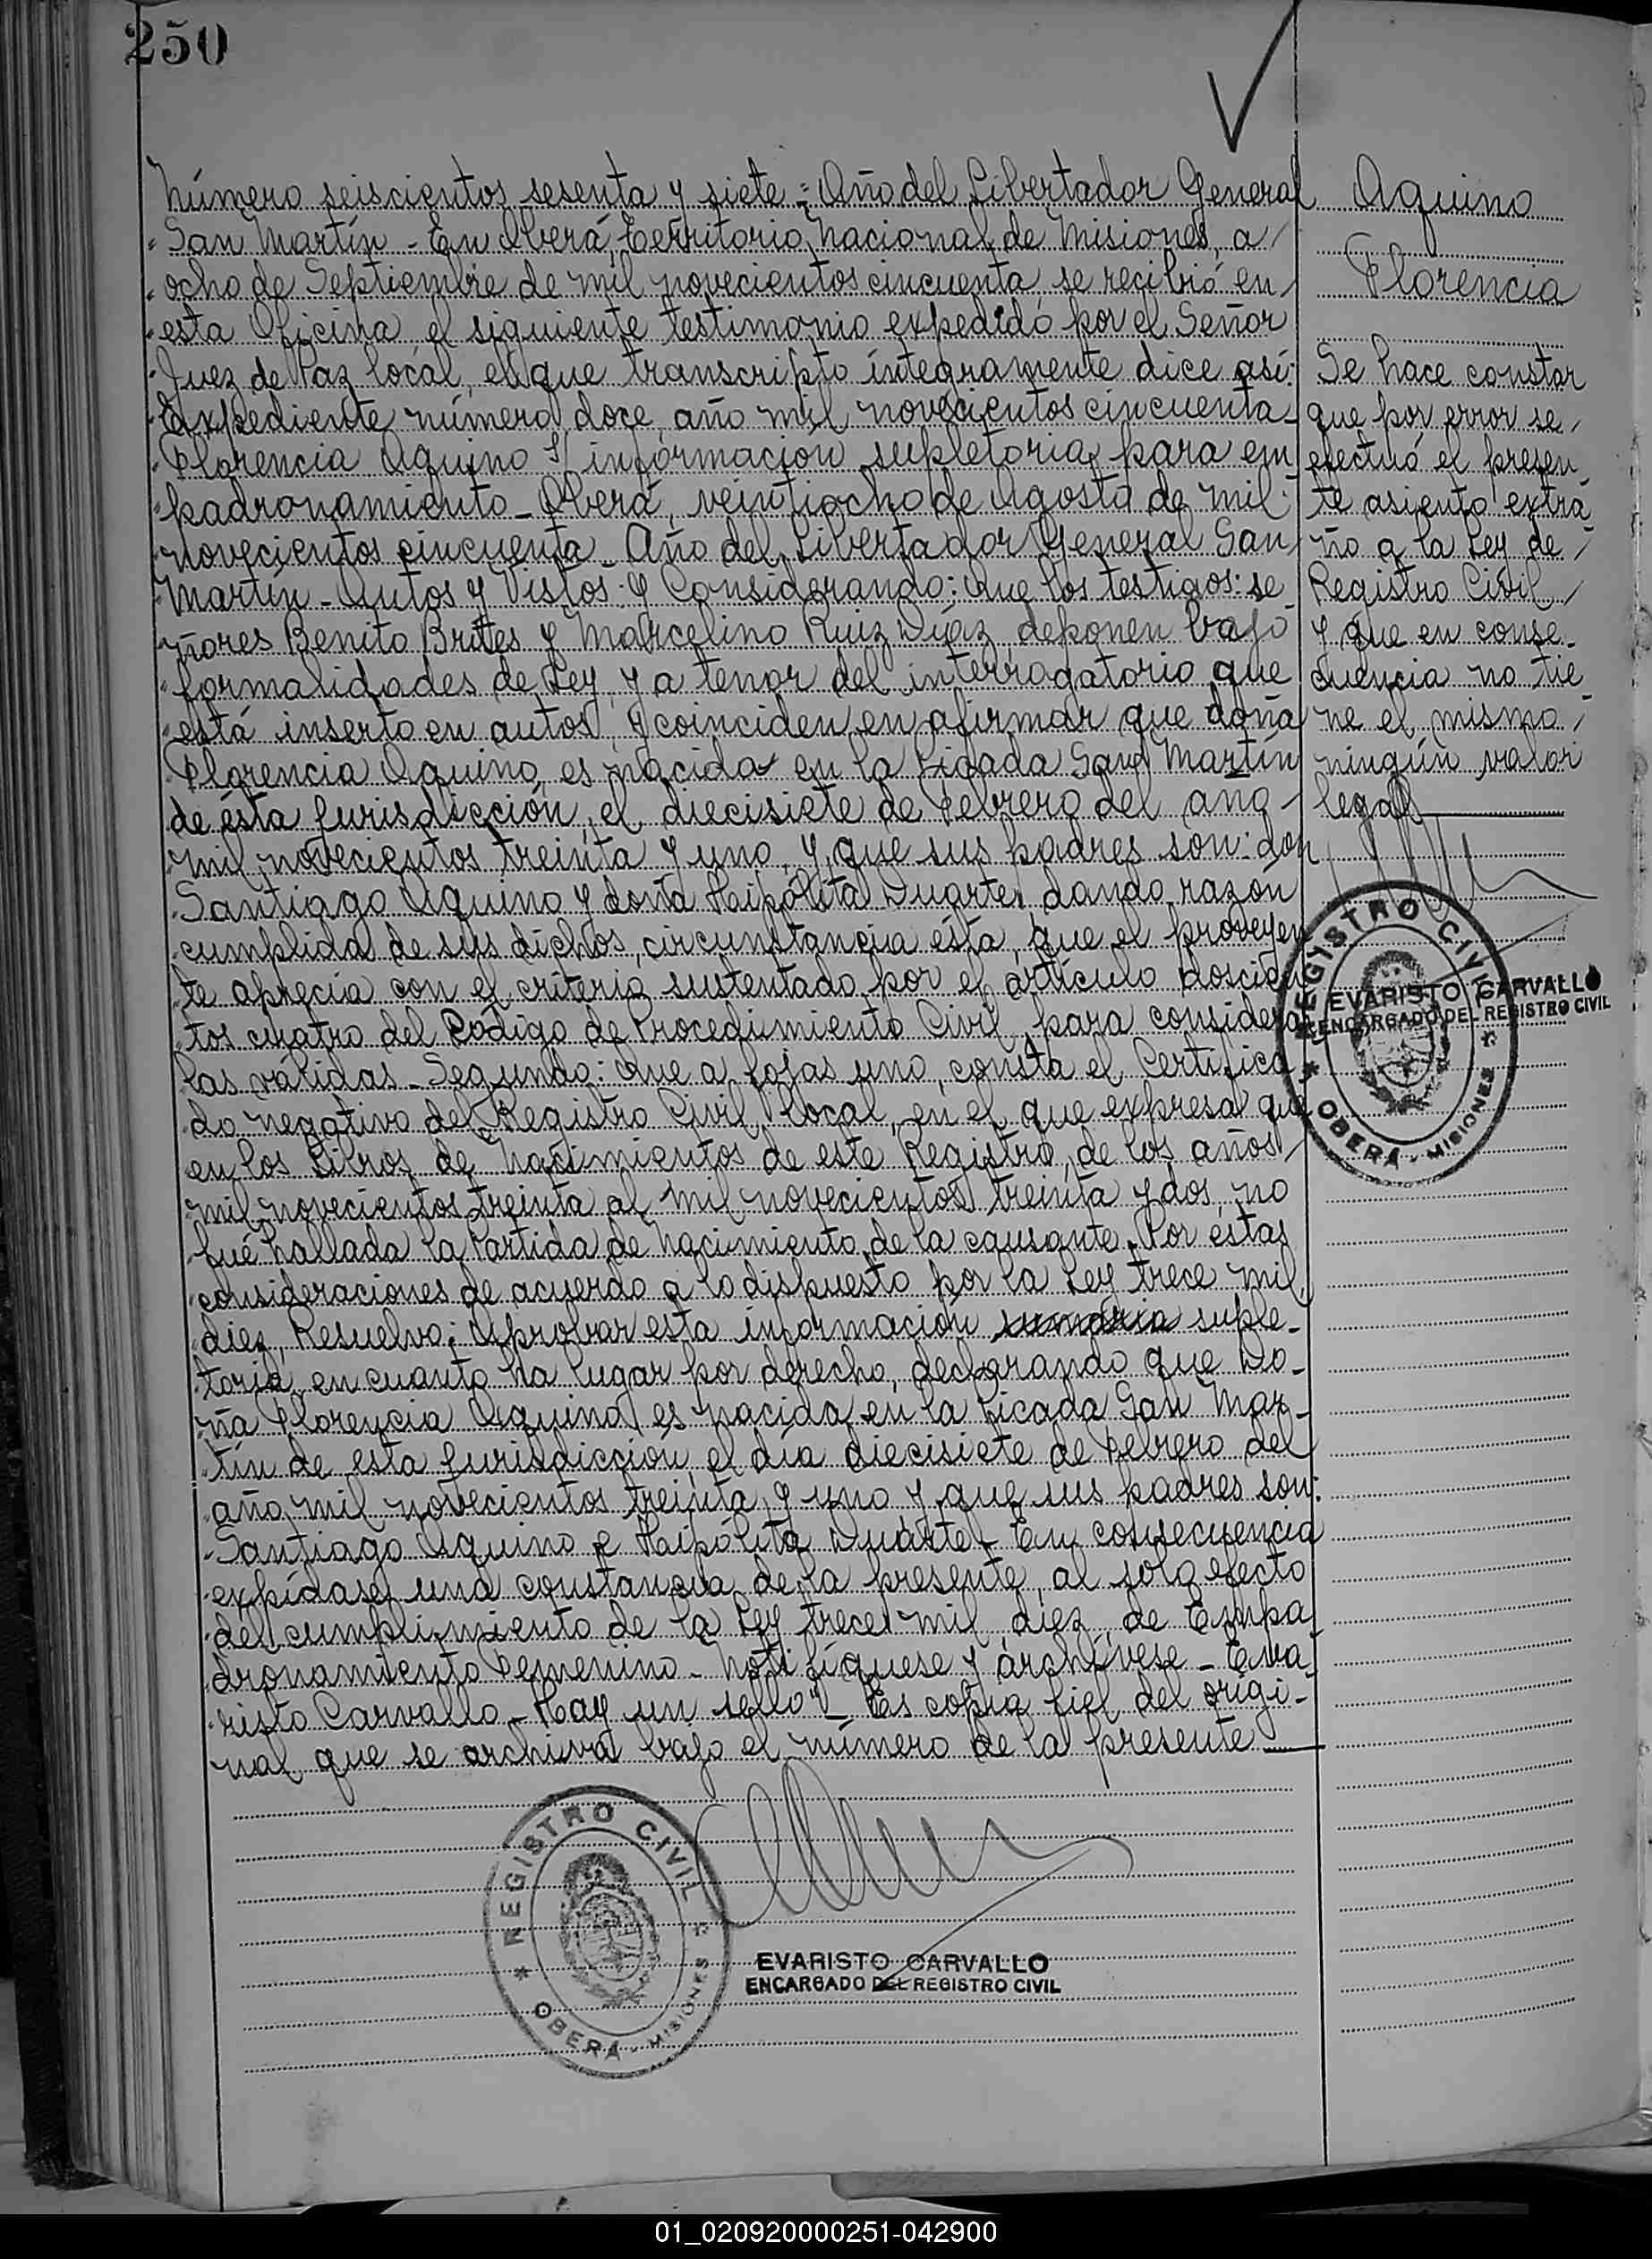 250
Número seiscientos sesenta y siete = Año del Libertador General
San Martín - En Oberá, Territorio Nacional de Misiones, a
ocho de Septiembre de mil novecientos cincuenta, se recibió en
esta Oficina, el siguiente testimonio expedido por el Señor
Juez de Paz local, el que transcripto íntegramente dice así:
Expediente número doce, año mil novecientos cincuenta
Florencia Aquino S/ información supletoria para em
padronamiento - Oberá, veintiocho de Agosto de mil
novecientos cincuenta - Año del Libertador General San
Martín - Autos y Vistos: y Considerando: Que los testigos: se
ñores Benito Brites y Marcelino Ruiz Díaz deponen bajo
formalidades de Ley, y a tenor del interrogatorio que
está inserto en autos, y coinciden en afirmar que doña
Florencia Aquino, es nacida en la Picada San Martín
de ésta jurisdicción, el diecisiete de Febrero del año
mil novecientos treinta y uno, y que sus padres son: don
Santiago Aquino y doña Haipólita Duarte, dando razón
cumplida de sus dichos, circunstancia ésta, que el proveyen
te aprecia con el criterio sustentado por el artículo doscien
tos cuatro del Código de Procedimiento Civil, para considerar
las válidas - Segundo: Que a fojas uno, consta el Certifica
do negativo del Registro Civil local, en el que expresa que
en los Libros de Nacimientos de este Registro, de los años
mil novecientos treinta al mil novecientos treinta y dos, no
fué hallada la Partida de Nacimiento de la causante. Por éstas
consideraciones de acuerdo a lo dispuesto por la Ley trece mil
diez, Resuelvo: Aprobar esta información sumaria suple-
toria, en cuanto ha lugar por derecho, declarando que Do-
ña Florencia Aquino es nacida en la Picada San Mar-
tín de esta jurisdicción, el día diecisiete de Febrero del
año mil novecientos treinta y uno y que sus padres son:
Santiago Aquino e Haipólita Duarte - En consecuencia
expídase una constancia de la presente, al solo efecto
del cumplimiento de la Ley trece mil diez, de Empa
dronamiento Femenino - Notifíquese y archívese - Eva-
risto Carvallo - Hay un sello" - Es copia fiel del origi-
nal que se archiva bajo el número de la presente
REGISTRO CIVIL
OBERÁ - MISIONES
EVARISTO CARVALLO
ENCARGADO DEL REGISTRO CIVIL
Aquino
Florencia
Se hace constar
que por error se
efectuó el presen
te asiento extra
ño a la Ley de
Registro Civil
y que en conse-
cuencia no tie
ne el mismo
ningún valor
legal
REGISTRO CIVIL
EVARISTO CARVALLO
ENCARGADO DEL REGISTRO CIVIL
OBERÁ - MISIONES
01_020920000251-042900